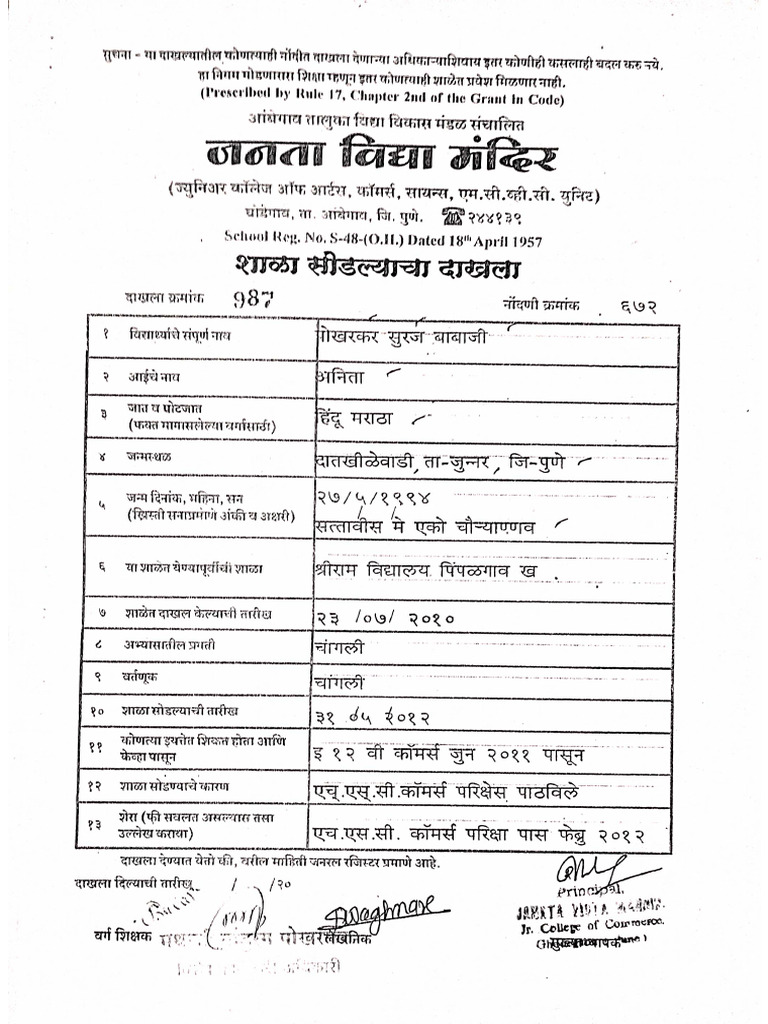 सुचना - या दाखल्यातील कोणत्याही नोंदीत दाखला देणाऱ्या अधिकाऱ्याशिवाय इतर कोणीही कसलाही बदल करु नये.
हा नियम मोडणारास शिक्षा म्हणून इतर कोणत्याही शाळेत प्रवेश मिळणार नाही.
(Prescribed by Rule 17, Chapter 2nd of the Grant in Code)
आंबेगाव तालुका विद्या विकास मंडळ संचालित
जनता विद्या मंदिर
(ज्युनिअर कॉलेज ऑफ आर्टस, कॉमर्स, सायन्स, एम.सी.व्ही.सी. युनिट)
घोडेगाव, ता. आंबेगाव, जि. पुणे. ☎२४४१३९
School Reg. No. S-48-(O.H.) Dated 18th April 1957
शाळा सोडल्याचा दाखला
दाखला क्रमांक 987 नोंदणी क्रमांक ६७२
१ विद्यार्थ्याचे संपूर्ण नाव पोखरकर सुरज बाबाजी
२ आईचे नाव अनिता
३ जात व पोटजात
(फक्त मागासलेल्या वर्गासाठी) हिंदू मराठा
४ जन्मस्थळ दातखीळेवाडी, ता-जुन्नर, जि-पुणे
५ जन्म दिनांक, महिना, सन २७/५/१९९४
(ख्रिस्ती सनाप्रमाणे अंकी व अक्षरी) सत्तावीस मे एको चौऱ्याण्णव
६ या शाळेत येण्यापूर्वीची शाळा श्रीराम विद्यालय पिंपळगाव ख
७ शाळेत दाखल केल्याची तारीख २३ /०७/ २०१०
८ अभ्यासातील प्रगती चांगली
९ वर्तणूक चांगली
१० शाळा सोडल्याची तारीख ३१ ०५ २०१२
११ कोणत्या इयत्तेत शिकत होता आणि
केव्हा पासून इ १२ वी कॉमर्स जुन २०११ पासून
१२ शाळा सोडण्याचे कारण एच्.एस्.सी.कॉमर्स परिक्षेस पाठविले
१३ शेरा (फी सवलत असल्यास तसा
उल्लेख करावा) एच.एस.सी. कॉमर्स परिक्षा पास फेब्रु २०१२
दाखला देण्यात येतो की, वरील माहिती जनरल रजिस्टर प्रमाणे आहे.
दाखला दिल्याची तारीख / /२०
Principal,
JANATA VIDYA MANDIR
Jr. College of Commerce,
वर्ग शिक्षक